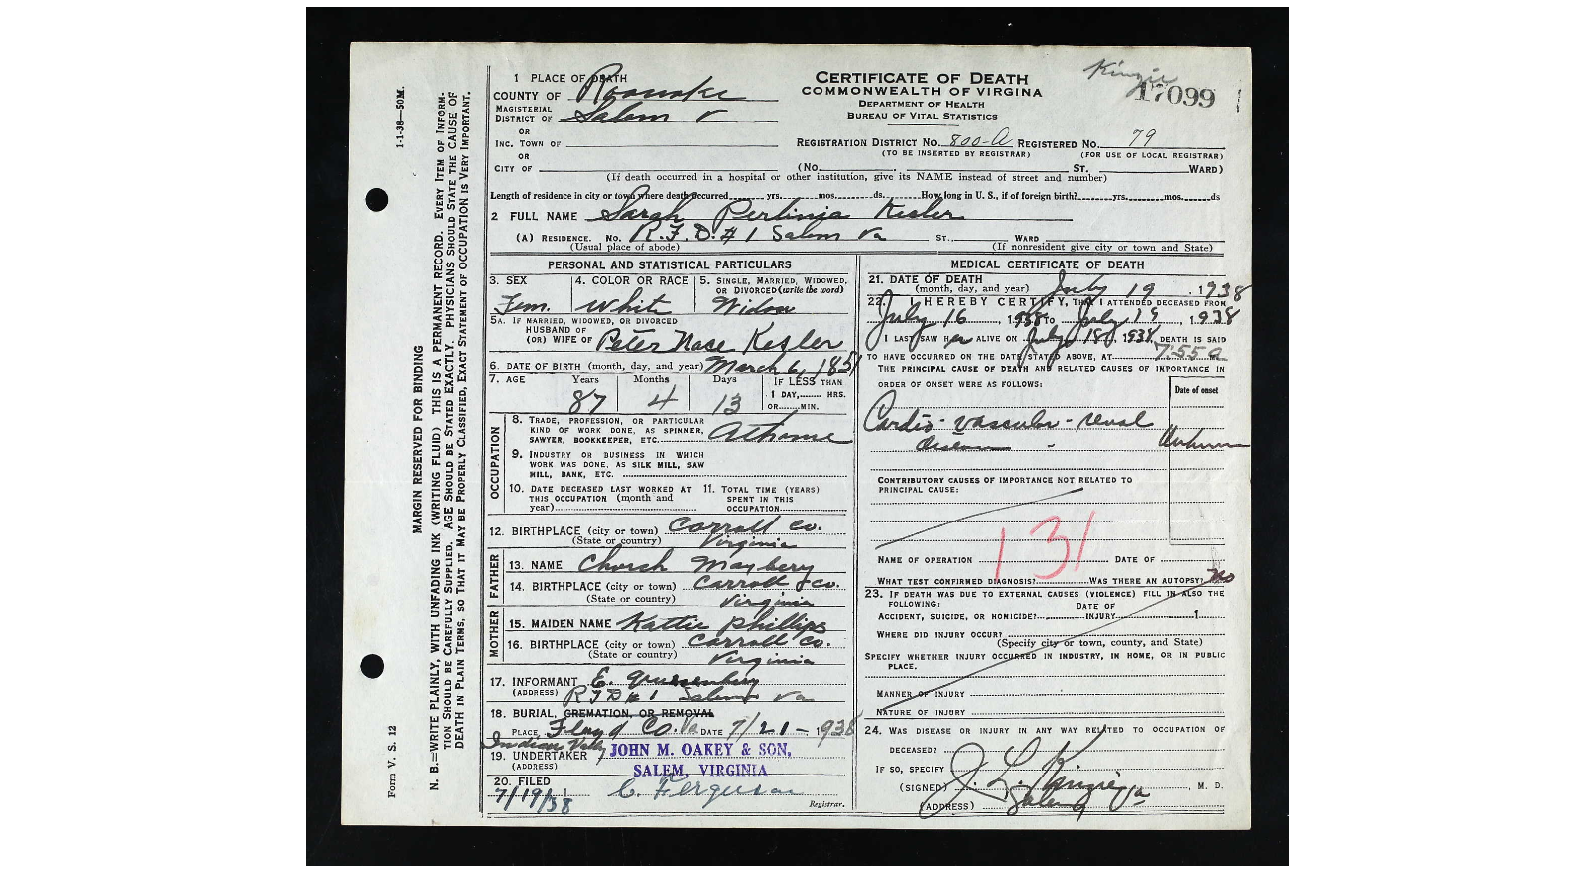 1 PLACE OF DEATH
COUNTY OF Roanoke
MAGISTERIAL
DISTRICT OF Salem
OR
INC. TOWN OF
OR
CITY OF
CERTIFICATE OF DEATH
COMMONWEALTH OF VIRGINIA
DEPARTMENT OF HEALTH
BUREAU OF VITAL STATISTICS
17099
REGISTRATION DISTRICT NO. 800-A REGISTERED NO. 79
(TO BE INSERTED BY REGISTRAR) (FOR USE OF LOCAL REGISTRAR)
(NO. ST. WARD)
(If death occurred in a hospital or other institution, give its NAME instead of street and number)
Length of residence in city or town where death occurred yrs. mos. ds. How long in U. S., if of foreign birth? yrs. mos. ds
2 FULL NAME Sarah Perlinia Kesler
(A) RESIDENCE. NO. R.F.D. #1 Salem Va ST. WARD
(Usual place of abode) (If nonresident give city or town and State)
PERSONAL AND STATISTICAL PARTICULARS
3. SEX Fem.
4. COLOR OR RACE White
5. SINGLE, MARRIED, WIDOWED,
OR DIVORCED (write the word)
Widow
5A. IF MARRIED, WIDOWED, OR DIVORCED
HUSBAND OF
(OR) WIFE OF Peter Nase Kesler
6. DATE OF BIRTH (month, day, and year) March 6, 1851
7. AGE Years Months Days IF LESS THAN
1 DAY, HRS.
OR MIN.
87 4 13
OCCUPATION
8. TRADE, PROFESSION, OR PARTICULAR
KIND OF WORK DONE, AS SPINNER,
SAWYER, BOOKKEEPER, ETC. At home
9. INDUSTRY OR BUSINESS IN WHICH
WORK WAS DONE, AS SILK MILL, SAW
MILL, BANK, ETC.
10. DATE DECEASED LAST WORKED AT
THIS OCCUPATION (month and
year)
11. TOTAL TIME (YEARS)
SPENT IN THIS
OCCUPATION
12. BIRTHPLACE (city or town) Carroll Co.
(State or country) Virginia
FATHER
13. NAME Church Maybery
14. BIRTHPLACE (city or town) Carroll Co.
(State or country) Virginia
MOTHER
15. MAIDEN NAME Kattie Phillips
16. BIRTHPLACE (city or town) Carroll Co.
(State or country) Virginia
17. INFORMANT E.
(ADDRESS) R F D # 1 Salem Va
18. BURIAL, CREMATION, OR REMOVAL
PLACE Floyd Co. Va DATE 7/21-1938
Indian Valley
19. UNDERTAKER JOHN M. OAKEY & SON,
(ADDRESS) SALEM, VIRGINIA
20. FILED
7/19/38 C. Ferguson
Registrar.
MEDICAL CERTIFICATE OF DEATH
21. DATE OF DEATH
(month, day, and year) July 19, 1938
22. I HEREBY CERTIFY, THAT I ATTENDED DECEASED FROM
July 16, 1938 TO July 19, 1938
I LAST SAW Her ALIVE ON July 18, 1938, DEATH IS SAID
TO HAVE OCCURRED ON THE DATE STATED ABOVE, AT 7:55 a
THE PRINCIPAL CAUSE OF DEATH AND RELATED CAUSES OF IMPORTANCE IN
ORDER OF ONSET WERE AS FOLLOWS:
Date of onset
Cardio-vascular-renal
disease
CONTRIBUTORY CAUSES OF IMPORTANCE NOT RELATED TO
PRINCIPAL CAUSE:
131
NAME OF OPERATION DATE OF
WHAT TEST CONFIRMED DIAGNOSIS? WAS THERE AN AUTOPSY? No
23. IF DEATH WAS DUE TO EXTERNAL CAUSES (VIOLENCE) FILL IN ALSO THE
FOLLOWING: DATE OF
ACCIDENT, SUICIDE, OR HOMICIDE? INJURY
WHERE DID INJURY OCCUR?
(Specify city or town, county, and State)
SPECIFY WHETHER INJURY OCCURRED IN INDUSTRY, IN HOME, OR IN PUBLIC
PLACE.
MANNER OF INJURY
NATURE OF INJURY
24. WAS DISEASE OR INJURY IN ANY WAY RELATED TO OCCUPATION OF
DECEASED?
IF SO, SPECIFY
(SIGNED) , M. D.
(ADDRESS) Salem
MARGIN RESERVED FOR BINDING
N. B.—WRITE PLAINLY, WITH UNFADING INK (WRITING FLUID) THIS IS A PERMANENT RECORD. EVERY ITEM OF INFORM-
TION SHOULD BE CAREFULLY SUPPLIED. AGE SHOULD BE STATED EXACTLY. PHYSICIANS SHOULD STATE THE CAUSE OF
DEATH IN PLAIN TERMS, SO THAT IT MAY BE PROPERLY CLASSIFIED, EXACT STATEMENT OF OCCUPATION IS VERY IMPORTANT.
Form V. S. 12
1-1-38—50M.